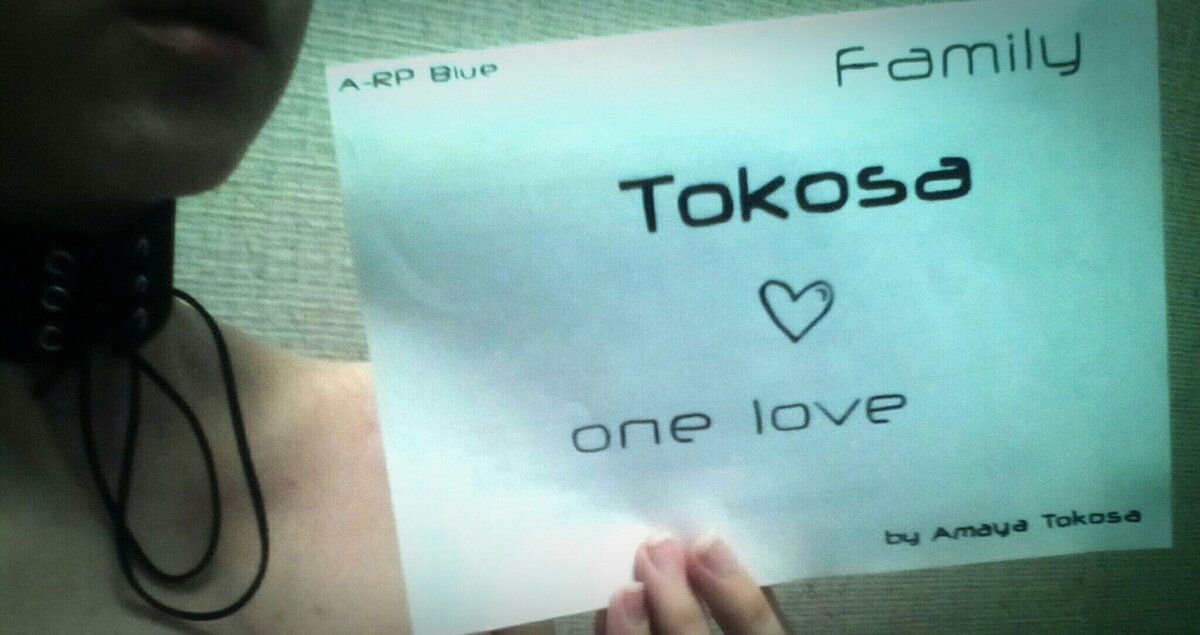 A-RP Blue
Family
Tokosa
one love
by Amaya Tokosa